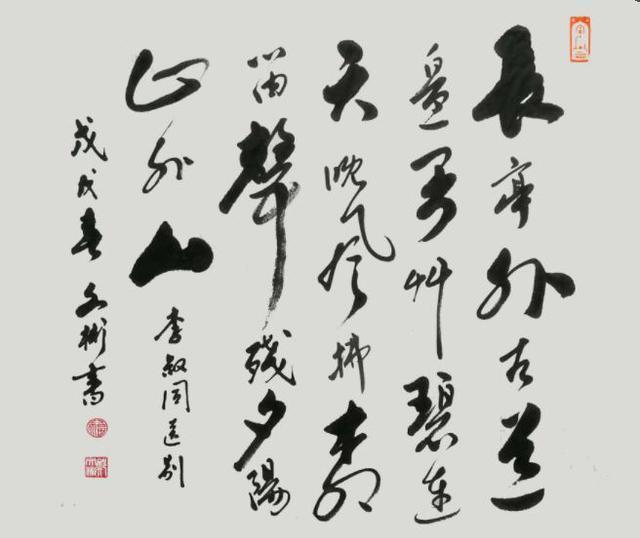 長亭外古道
邊芳艸碧連
天晚風拂柳
笛聲殘夕陽
山外山 李叔同送別
戊戌春文彬書